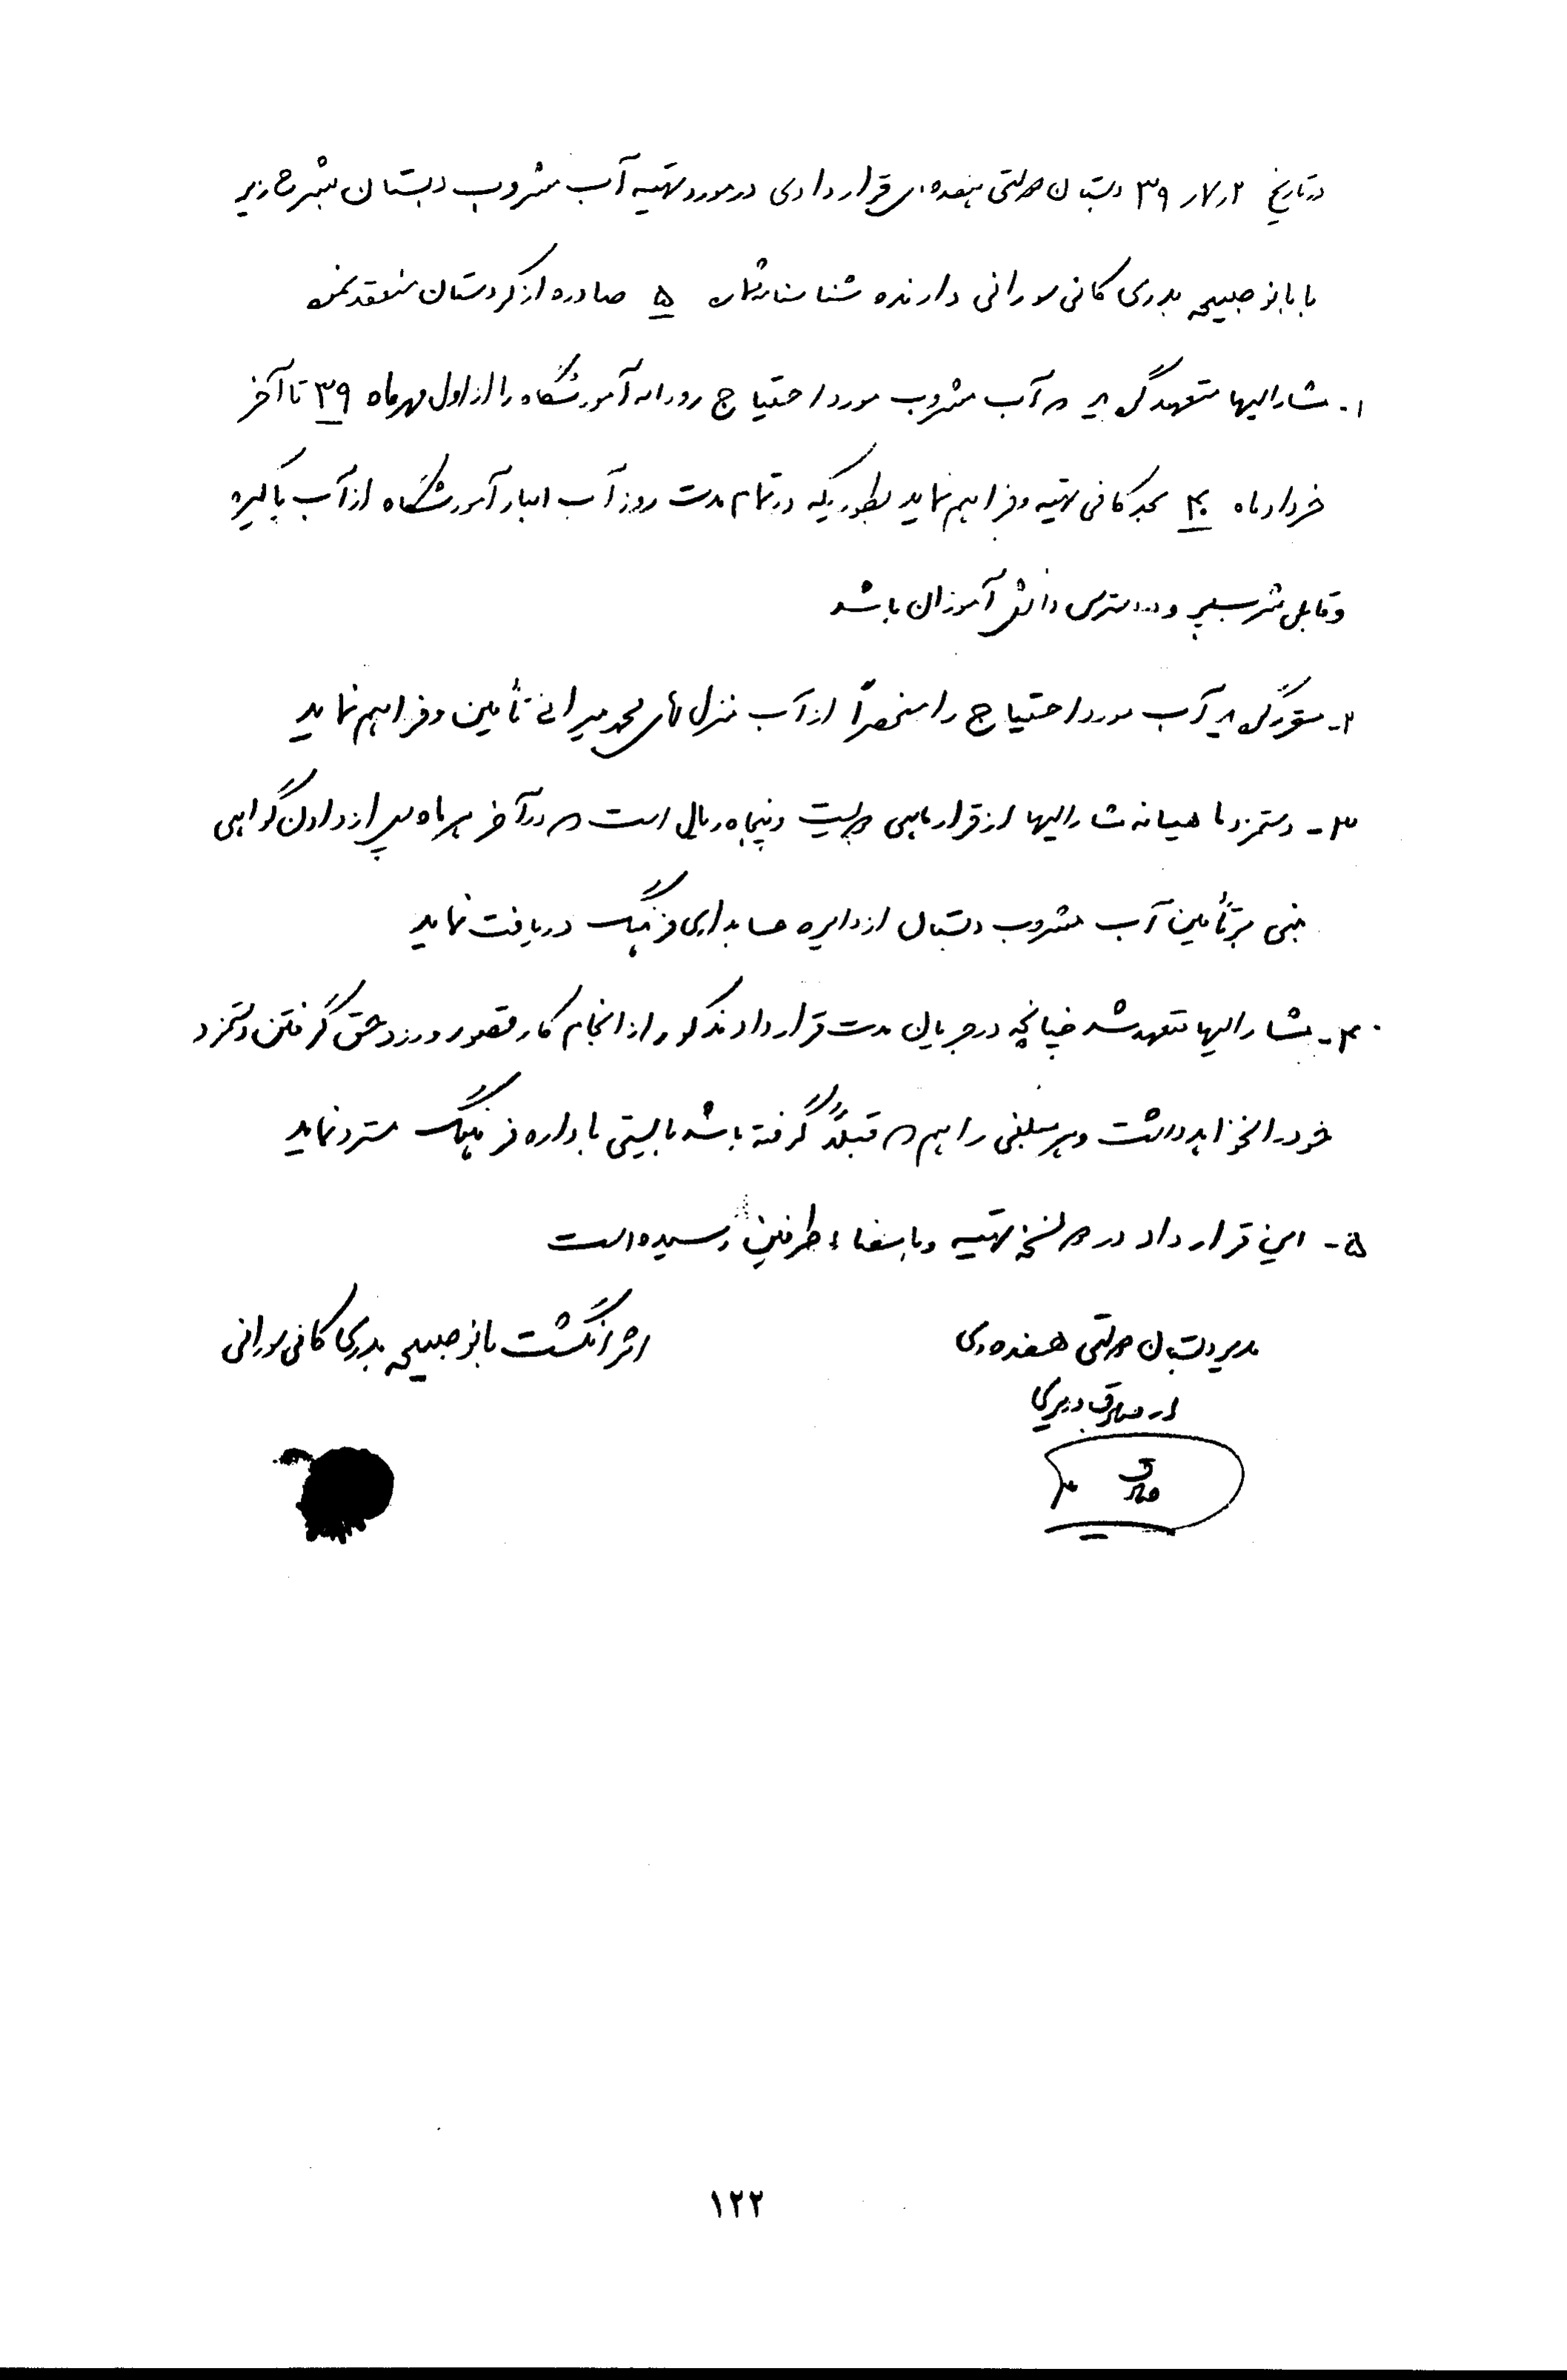 در تاریخ ۲ر۷ر۳۹ دبستان دولتی هفده دی قراردادی در مورد تهیه آب مشروب دبستان بشرح زیر
با بانو صبیحه بدری کانی سورانی دارنده شناسنامه شماره ۵ صادره از کردستان منعقد نمود
۱- مشارالیها متعهد گردید که آب مشروب مورد احتیاج روزانه آموزشگاه را از اول مهرماه ۳۹ تا آخر
خردادماه ۴۰ بحد کافی تهیه و فراهم نماید بطوریکه در تمام مدت روز آب انبار آموزشگاه از آب پاکیزه
و قابل شرب پر و در دسترس دانش آموزان باشد
۲- مقرر گردید آب مورد احتیاج را منحصراً از آب منزل آقای محمد میرانی تأمین و فراهم نماید
۳- دستمزد ماهیانه مشارالیها از قرار ماهی دویست و پنجاه ریال است که در آخر هر ماه پس از دادن گواهی
مبنی بر تأمین آب مشروب دبستان از دایره حسابداری فرهنگ دریافت نماید
۴- مشارالیها متعهد شد چنانچه در جریان مدت قرارداد مذکور از انجام کار قصور ورزد حق گرفتن دستمزد
خود را نخواهد داشت و هر مبلغی را هم که قبلاً گرفته باشد بایستی باداره فرهنگ مسترد نماید
۵- این قرارداد در دو نسخه تهیه و بامضاء طرفین رسیده است
مدیر دبستان دولتی هفده دی
اثر انگشت بانو صبیحه بدری کانی سورانی
صادق وزیری
صادق
۱۲۲